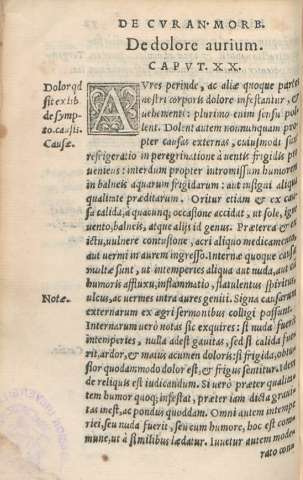 DE CVRAN. MORB.
De dolore aurium.
CAPVT. XX.
Dolor qd
sit ex lib.
de symp-
to. causis.
Causæ.
AVres perinde, ac aliæ quoque partes
nostri corporis dolore infestantur, &
uehementi: plurimo enim sensu pol-
lent. Dolent autem nonnunquam pro-
pter causas externas, cuiusmodi sunt
refrigeratio in peregrinatione à uentis frigidis pro
ueniens: interdum propter intromissum humorem
in balneis aquarum frigidarum: aut insigni aliqua
qualitate præditarum. Oritur etiam & ex cau-
sa calida, à quacunq; occasione accidat, ut sole, igne
uento, balneis, atque alijs id genus. Præterea & ex
ictu, uulnere contusione, acri aliquo medicamento,
aut uermi in aurem ingresso. Internæ quoque causæ
multæ sunt, ut intemperies aliqua aut nuda, aut cum
humoris affluxu, inflammatio, flatulentus spiritus
ulcus, ac uermes intra aures geniti. Signa causarum
externarum ex ægri sermonibus colligi possunt.
Notæ.
Internarum uerò notas sic exquires: si nuda fuerit
intemperies, nulla adest gauitas, sed si calida fue-
rit, ardor, & maius acumen doloris: si frigida, obtu-
sior quodammodo dolor est, & frigus sentitur. Idem
de reliquis est iudicandum. Si uerò præter qualita-
tem humor quoq; infestat, præter iam dicta grauit-
tas inest, ac pondus quoddam. Omni autem intempe-
riei, seu nuda fuerit, seu cum humore, hoc est com-
mune, ut à similibus lædatur. Iuuetur autem mode-
rato con-